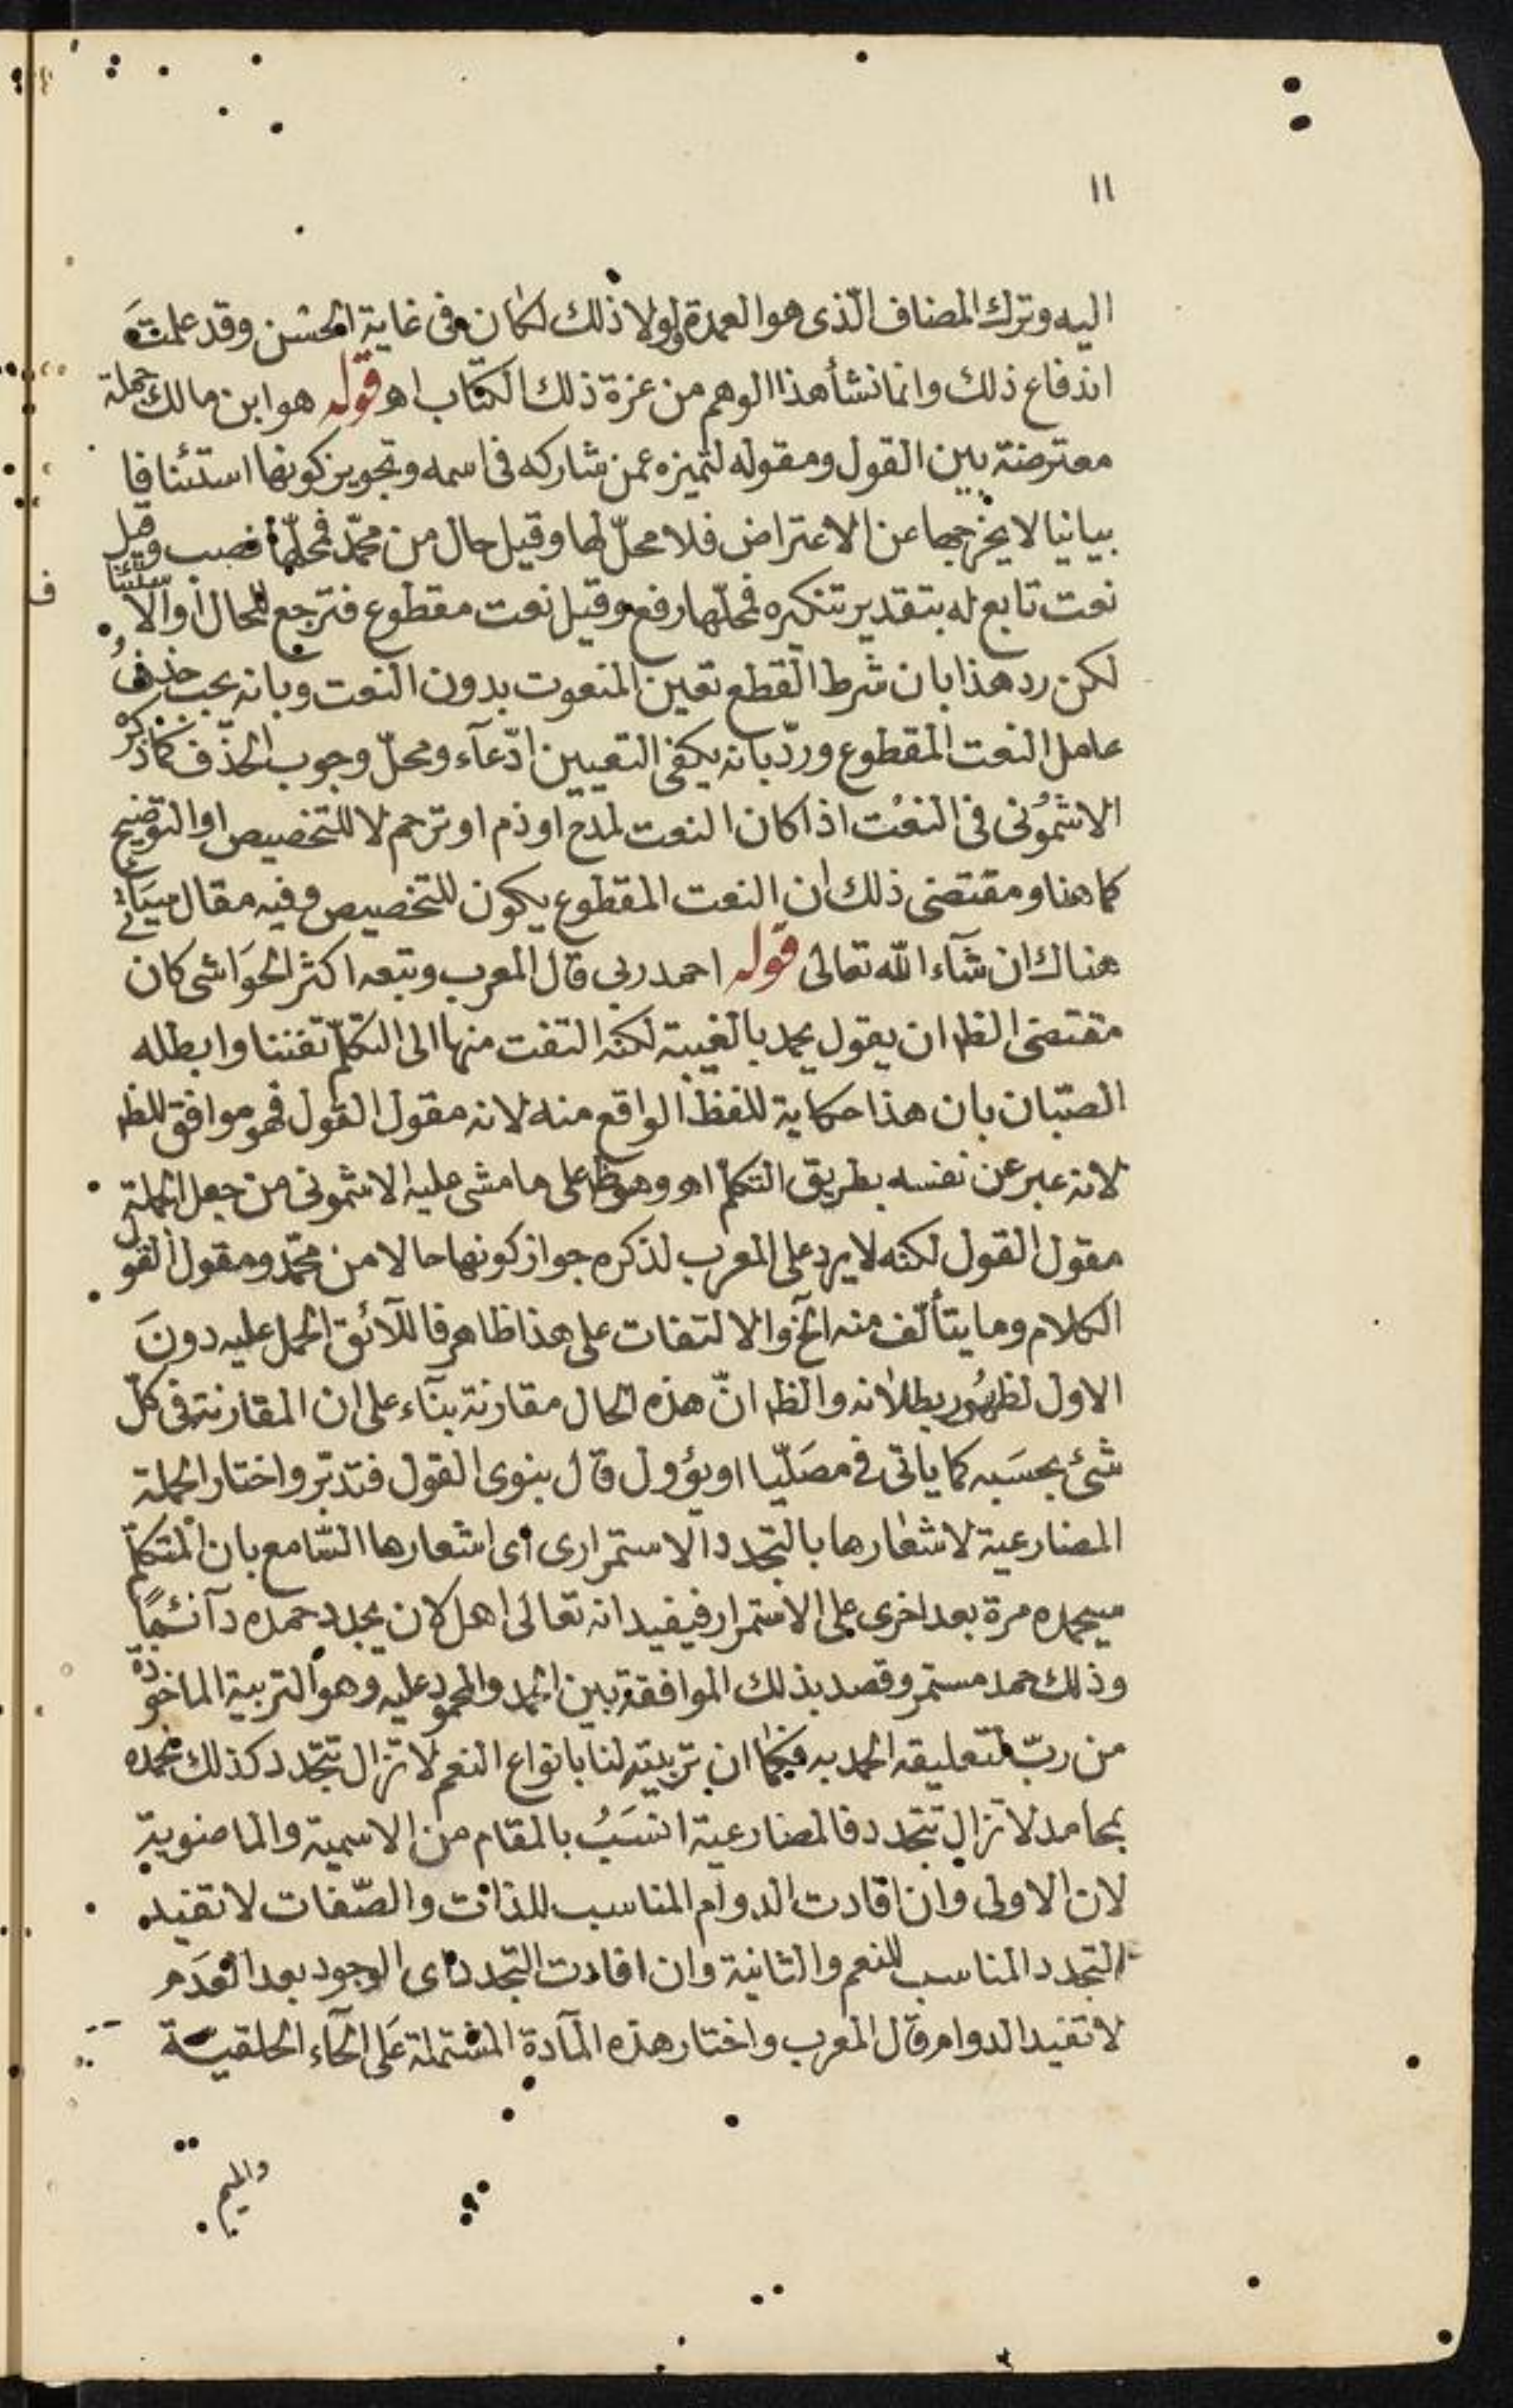 ١١
اليه وترك المضاف الّذى هو العمدة ولولا ذلك لكان فى غاية الحسْن وقد علمتَ
اندفاع ذلك وانما نشأ هذا الوهم من عزة ذلك الكتاب اهـ قوله هو ابن مالك جملة
معترضة بين القول ومقوله لتميزه عمن شاركه فى اسمه وتجويز كونها استئنافا
بيانيا لا يخرجها عن الاعتراض فلا محلّ لها وقيل حال من محمّد فمحلّها نصب وقيل
نعت تابع له بتقدير تنكيره فمحلّها رفع وقيل نعت مقطوع فترجع للحال او الاستئنا
ف
لكن رد هذا بان شرط القطع تعين المنعوت بدون النعت وبانه يجب حذفُ
عامل النعت المقطوع وردّ بانه يكفى التعيين ادّعآء ومحلّ وجوب الحذف كما ذكر
الاشمُونى فى النعْت اذا كان النعت لمدح او ذم او ترحم لا للتخصيص او التوضيح
كما هنا ومقتضى ذلك ان النعت المقطوع يكون للتخصيص وفيه مقال سيَأتى
هناك ان شآء الله تعالى قوله احمد ربى قال المعرب وتبعه اكثر الحوَاشى كان
مقتضى الظ ان يقول يحمد بالغيبة لكنه التفت منها الى التكلّم تفننا وابطله
الصبّان بان هذا حكاية للفظ الواقع منه لانه مقول القول فهو موافق للظ
لانه عبر عن نفسه بطريق التكلم اهـ وهو ظ على ما مشى عليه الاشمونى من جعل الجملة
مقول القول لكنه لا يرد على المعرب لذكره جواز كونها حالا من محمّد ومقول القول
الكلام وما يتألّف منه الخ والالتفات على هذا ظاهر فاللآئق الحمل عليه دونَ
الاول لظهُور بطلانه والظ انّ هذه الحال مقارنة بنآء على ان المقارنة فى كلّ
شئ بحسَبه كما ياتى فى مصَلّيا او يؤول قال بنوى القول فتدبّر واختار الجملة
المضارعية لاشعارها بالتجدد الاستمرارى اى اشعارها السّامع بان المتكلم
سيحمده مرة بعد اخرى على الاستمرار فيفيد انه تعالى اهل لان يجدد حمده دآئمًا
وذلك حمد مستمر وقصد بذلك الموافقة بين الحمد والمحمود عليه وهو التربية الماخوذة
من ربّ لتعليقه الحمد به فكما ان تربيته لنا بانواع النعم لا تزال تتجدد كذلك نحمده
بمحامد لا تزال تتجدد فالمضارعية انسَبُ بالمقام من الاسمية والماضوية
لان الاولى وان افادت الدوام المناسب للذات والصّفات لا تفيد
التجدد المناسب للنعم والثانية وان افادت التجدد اى الوجود بعد العَدَم
لا تفيد الدوام قال المعرب واختار هذه المآدة المشتملة عَلى الحآء الحلقية
والميم